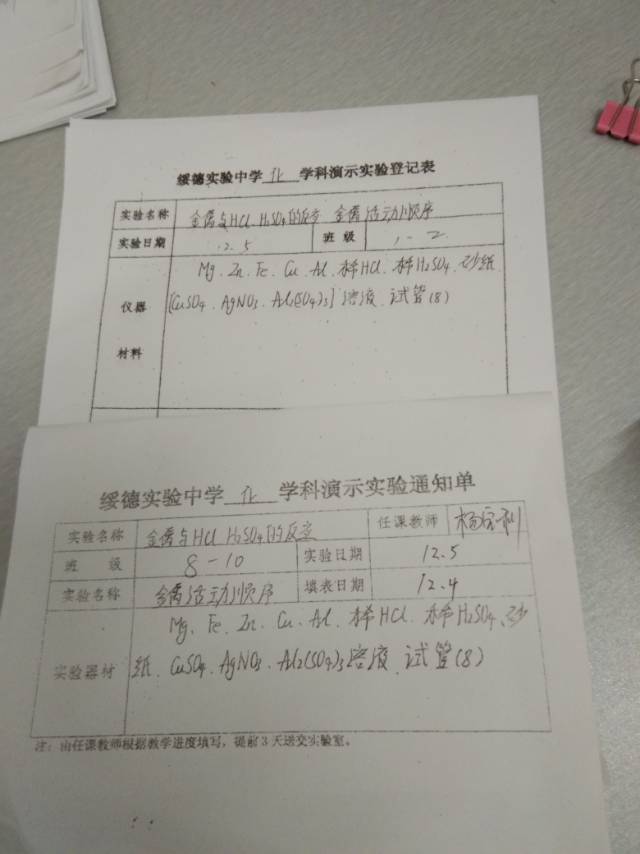 绥德实验中学 化 学科演示实验登记表
实验名称 金属与HCl H2SO4的反应 金属活动顺序
实验日期 12.5 班 级 1-2
仪器 材料 Mg. Zn. Fe. Cu. Al. 稀HCl. 稀H2SO4. 砂纸
[CuSO4. AgNO3. Al2(SO4)3]溶液. 试管(8)
绥德实验中学 化 学科演示实验通知单
实验名称 金属与HCl H2SO4的反应 任课教师
班 级 8-10 实验日期 12.5
实验名称 金属活动顺序 填表日期 12.4
实验器材 Mg. Fe. Zn. Cu. Al. 稀HCl. 稀H2SO4. 砂
纸. CuSO4. AgNO3. Al2(SO4)3溶液. 试管(8)
注：由任课教师根据教学进度填写，提前3天送交实验室。